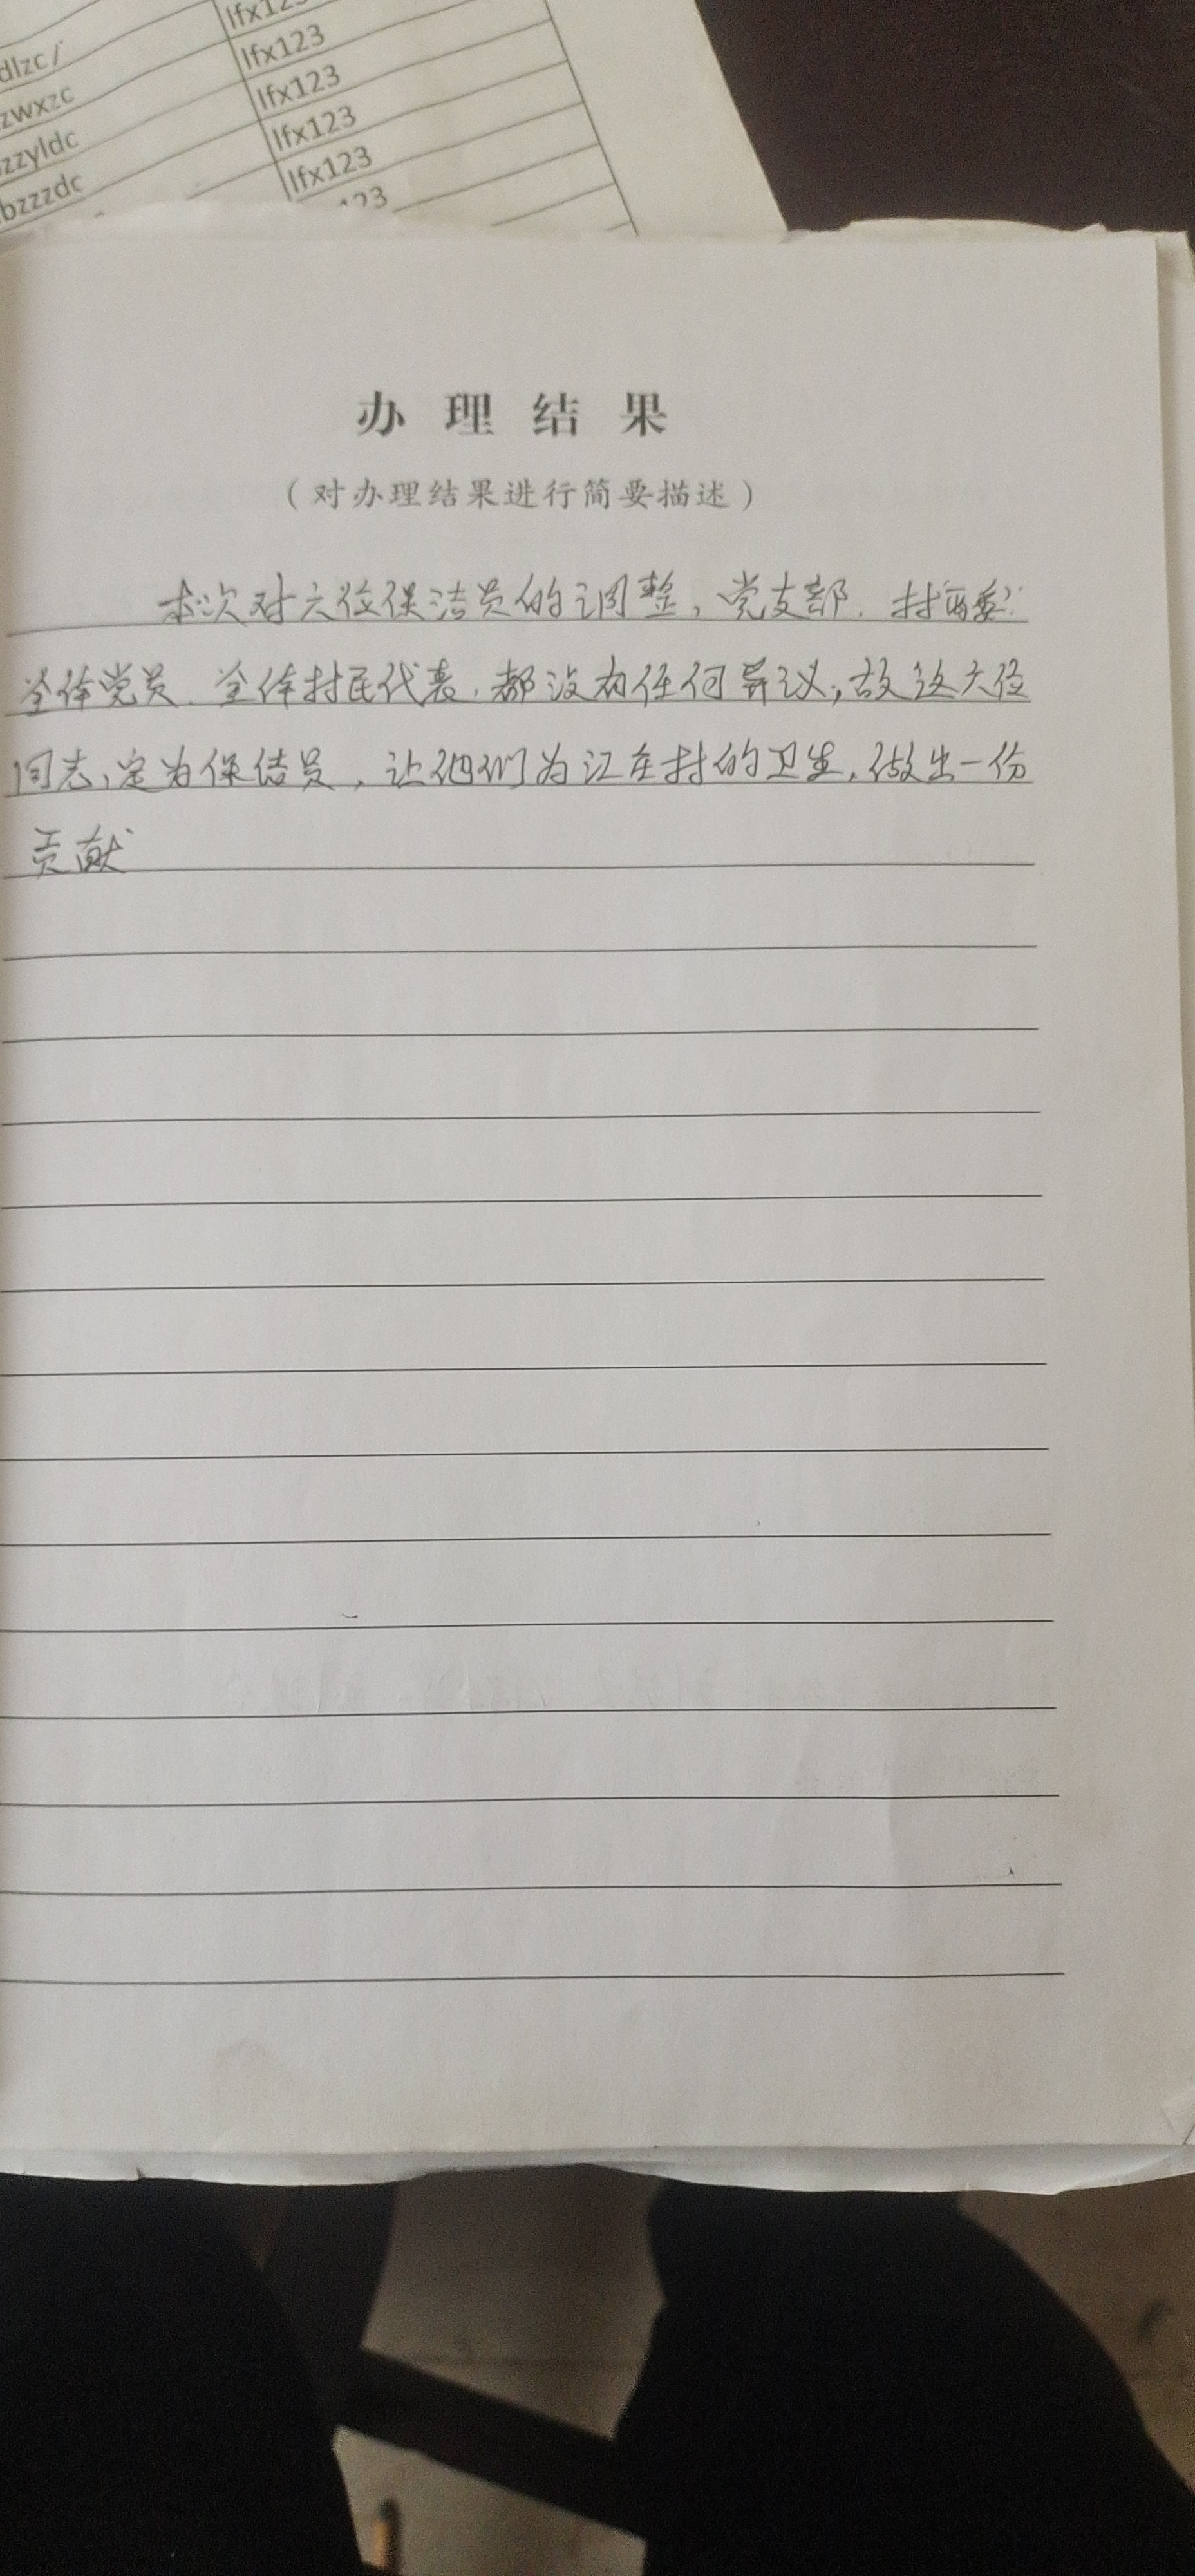 lfx123
dlzc
lfx123
zwxzc
lfx123
zzyldc
lfx123
bzzzdc
lfx123
123
办理结果
（对办理结果进行简要描述）
本次对六位保洁员的调整，党支部、村两委
全体党员、全体村民代表，都没有任何异议，故这六位
同志，定为保结员，让他们为江庄村的卫生，做出一份
贡献